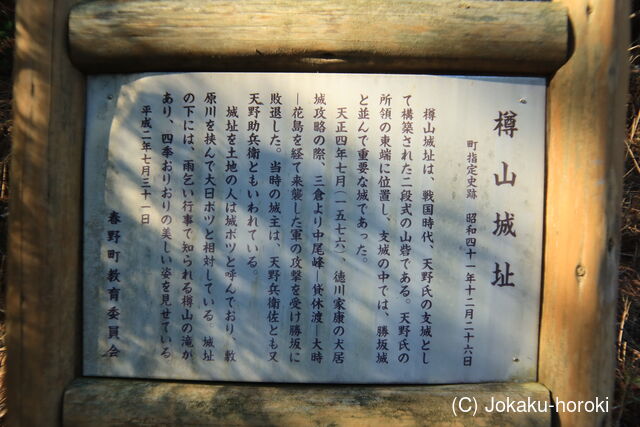 樽山城址
町指定史跡 昭和四十一年十二月二十六日
樽山城址は、戦国時代、天野氏の支城とし
て構築された二段式の山砦である。天野氏の
所領の東端に位置し、支城の中では、勝坂城
と並んで重要な城であった。
天正四年七月(一五七六)、徳川家康の犬居
城攻略の際、三倉より中尾峰―貸休渡―大時
―花島を経て来襲した軍の攻撃を受け勝坂に
敗退した。当時の城主は、天野兵衛佐とも又
天野助兵衛ともいわれている。
城址を土地の人は城ボツと呼んでおり、敷
原川を挟んで大日ボツと相対している。城址
の下には、雨乞い行事で知られる樽山の滝が
あり、四季おりおりの美しい姿を見せている
平成二年七月三十一日
春野町教育委員会
(C) Jokaku-horoki